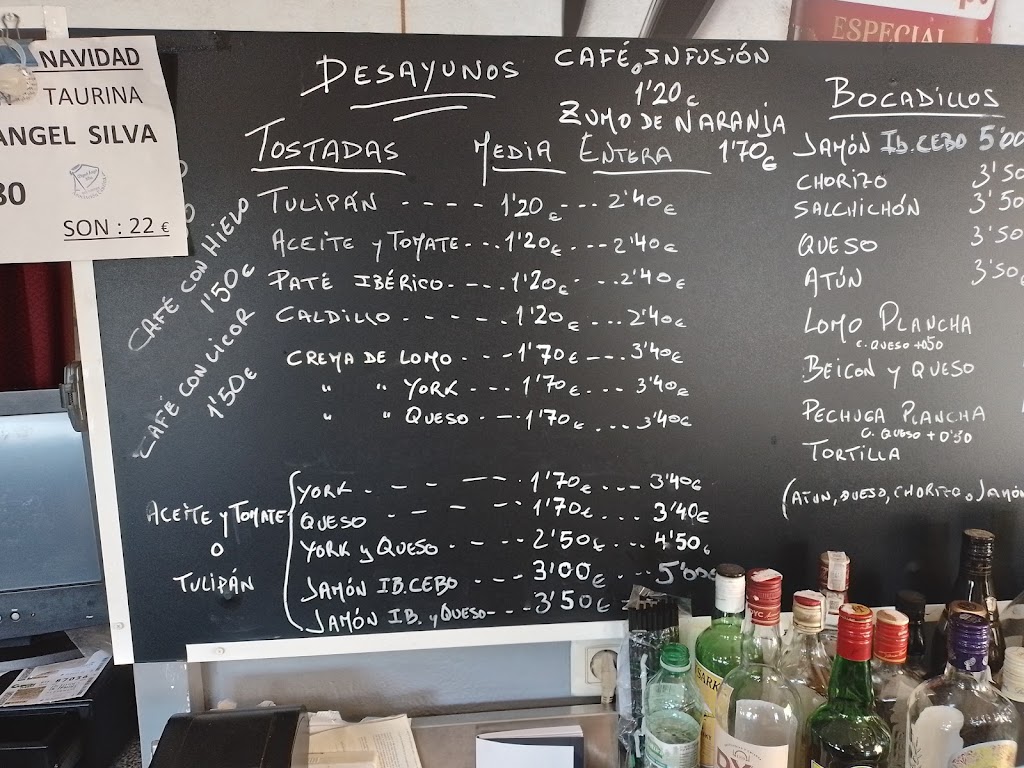 NAVIDAD
TAURINA
ANGEL SILVA
30
SON : 22 €
ESPECIAL
DESAYUNOS
CAFÉ o INFUSIÓN
1'20 €
ZUMO DE NARANJA
1'70 €
TOSTADAS MEDIA ENTERA
TULIPÁN ---- 1'20 € --- 2'40 €
ACEITE y TOMATE --- 1'20 € --- 2'40 €
PATÉ IBÉRICO ---- 1'20 € --- 2'40 €
CALDILLO ------ 1'20 € --- 2'40 €
CREMA DE LOMO --- 1'70 € --- 3'40 €
" " YORK --- 1'70 € --- 3'40 €
" " QUESO --- 1'70 € --- 3'40 €
ACEITE y TOMATE
O
TULIPÁN
YORK ----- 1'70 € --- 3'40 €
QUESO ----- 1'70 € --- 3'40 €
YORK y QUESO --- 2'50 € --- 4'50 €
JAMÓN IB. CEBO --- 3'00 € --- 5'00 €
JAMÓN IB. y QUESO --- 3'50 €
CAFÉ CON HIELO
1'50 €
CAFÉ CON LICOR
1'50 €
BOCADILLOS
JAMÓN Ib. CEBO 5'00
CHORIZO 3'50
SALCHICHÓN 3'50
QUESO 3'50
ATÚN 3'50 €
LOMO PLANCHA
C. QUESO +0'50
BEICON y QUESO
PECHUGA PLANCHA
C. QUESO + 0'50
TORTILLA
(ATUN, QUESO, CHORIZO o JAMÓN